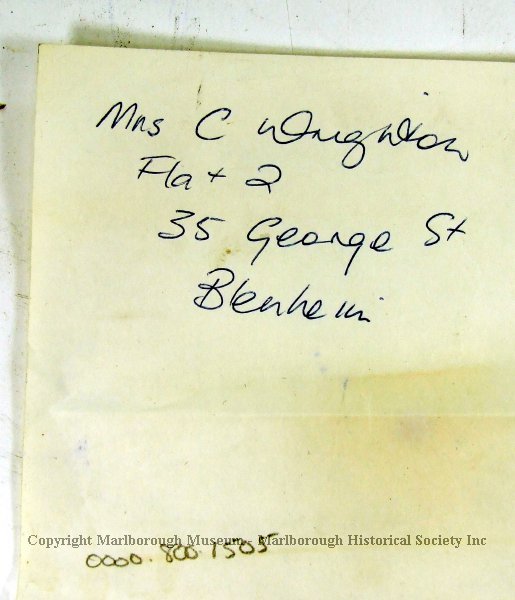 Mrs C Wrighton
Flat 2
35 George St
Blenheim
Copyright Marlborough Museum - Marlborough Historical Society Inc
0000.800.1505